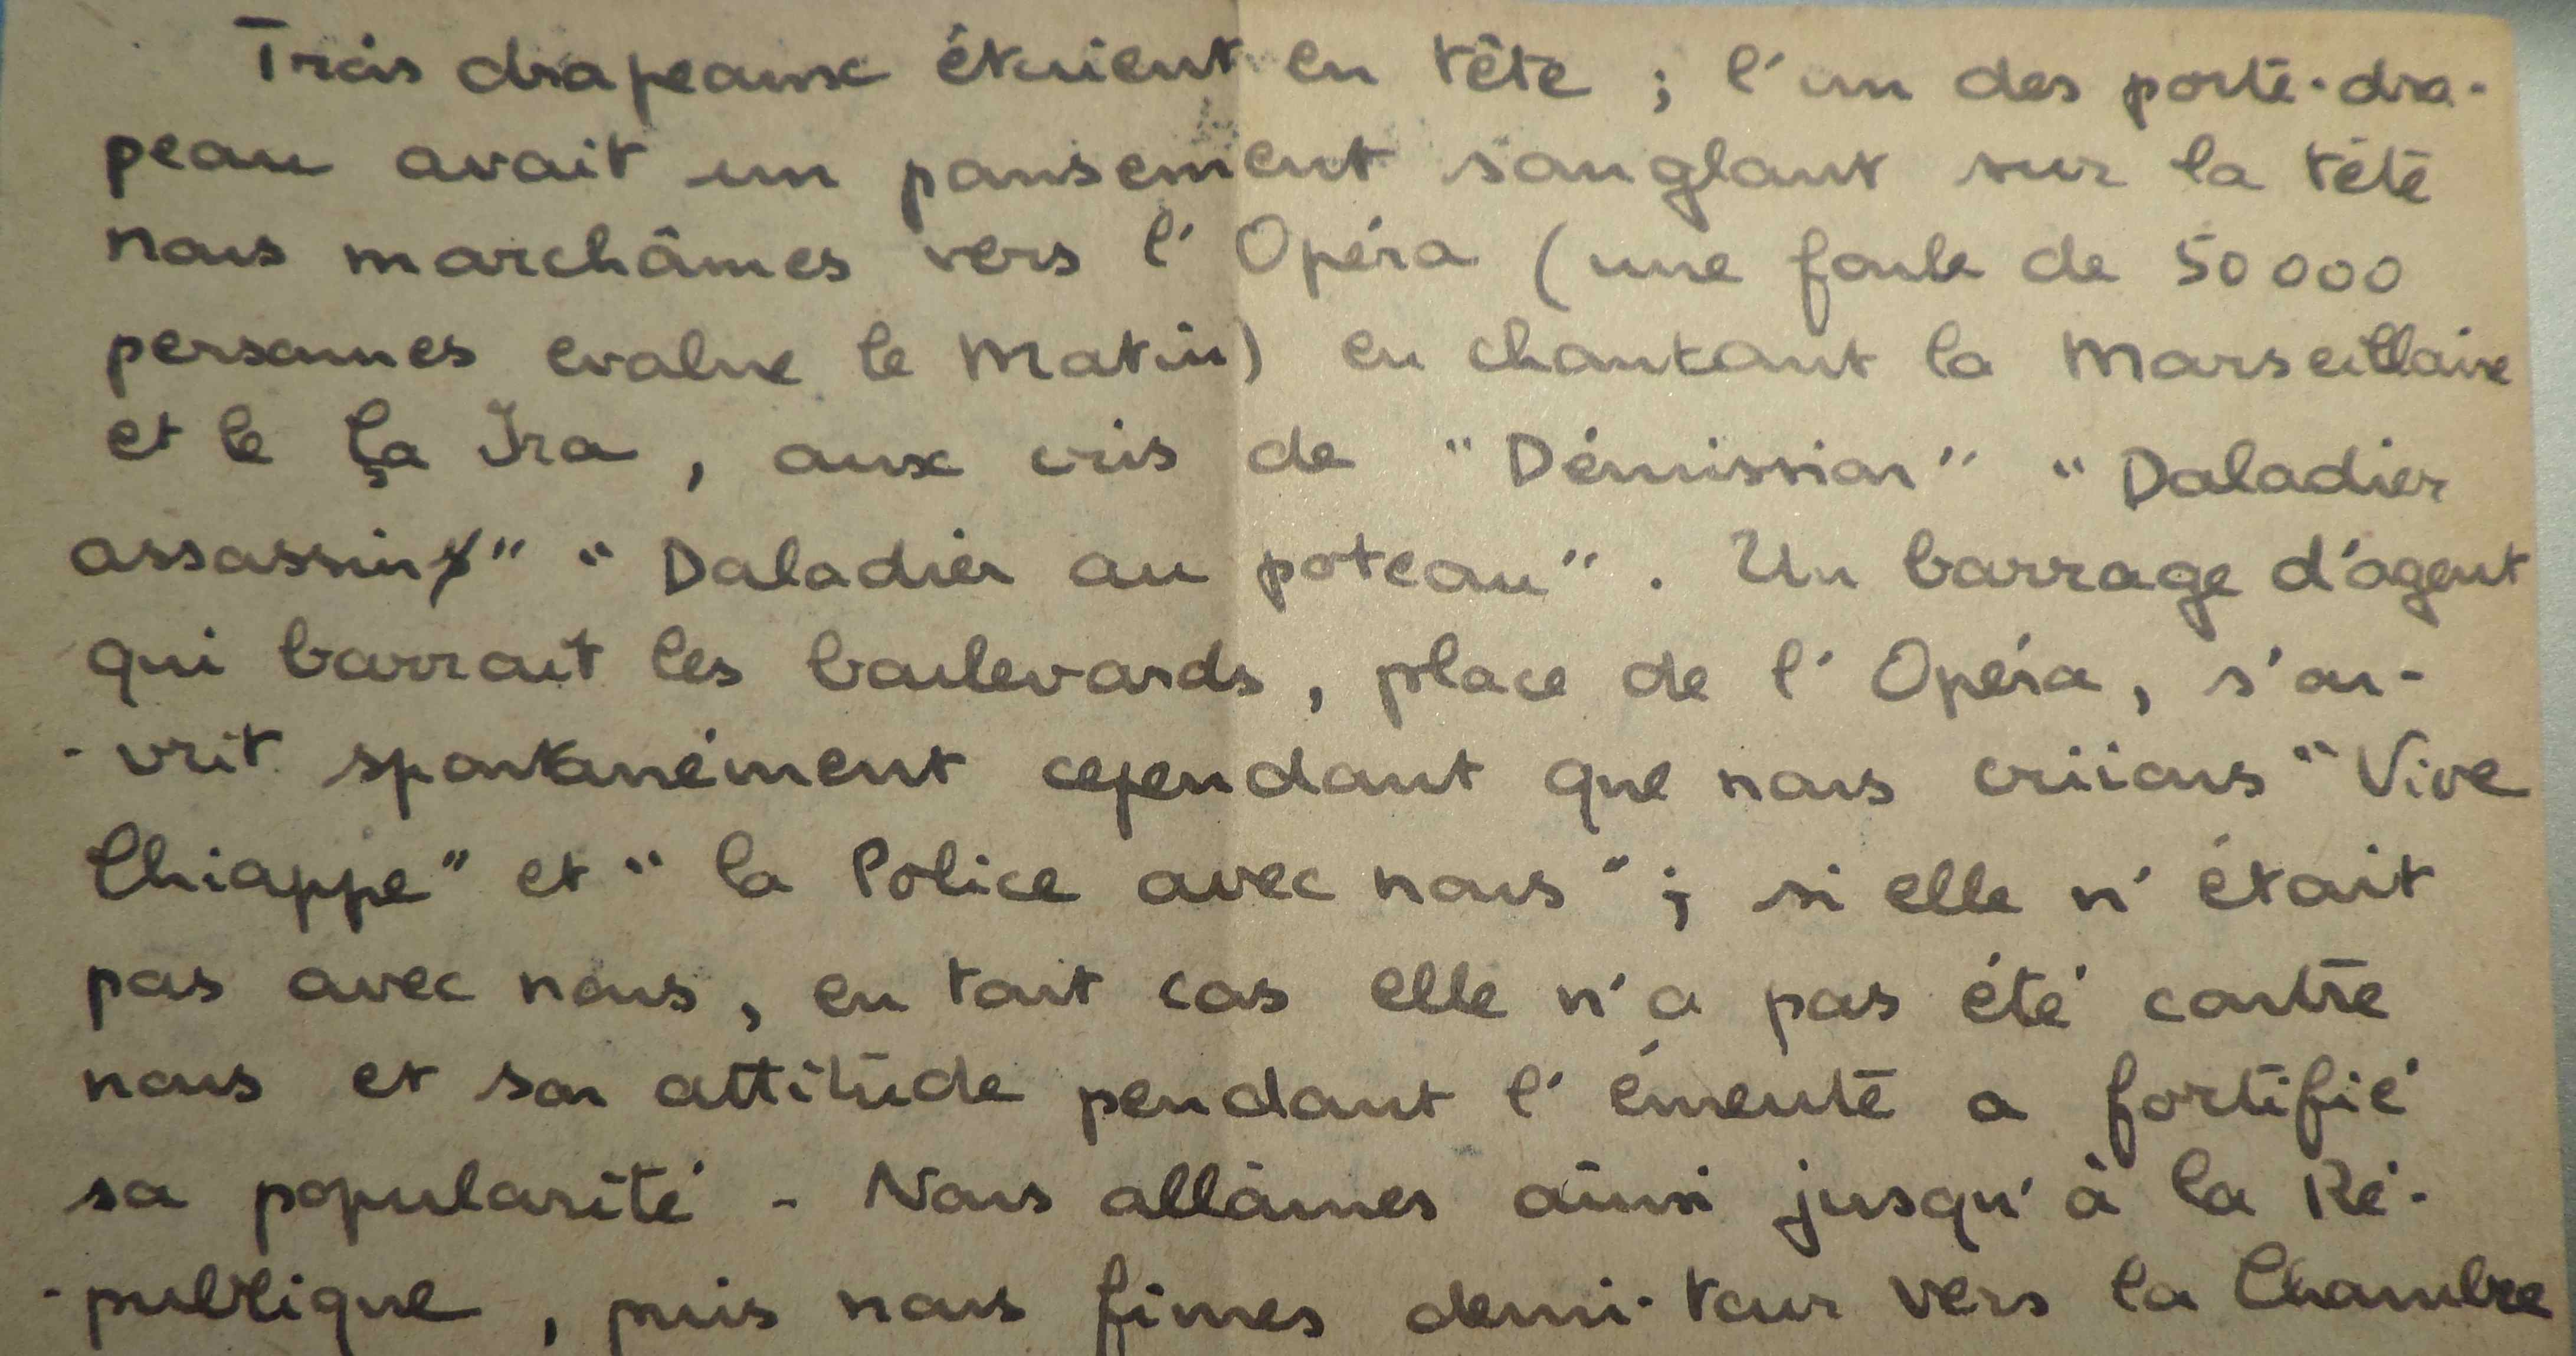 Trois drapeaux étaient en tête ; l'un des porte-dra-
peau avait un pansement sanglant sur la tête
nous marchâmes vers l'Opéra (une foule de 50 000
personnes evalue le Matin) en chantant la Marseillaise
et le Ça Ira, aux cris de "Démission" "Daladier
assassin" "Daladier au poteau". Un barrage d'agent
qui barrait les boulevards, place de l'Opéra, s'ou-
-vrit spontanément cependant que nous criions "Vive
Chiappe" et "la Police avec nous" ; si elle n'était
pas avec nous, en tout cas elle n'a pas été contre
nous et son attitude pendant l'émeute a fortifié
sa popularité - Nous allâmes ainsi jusqu'à la Ré-
-publique, puis nous fimes demi-tour vers la Chambre